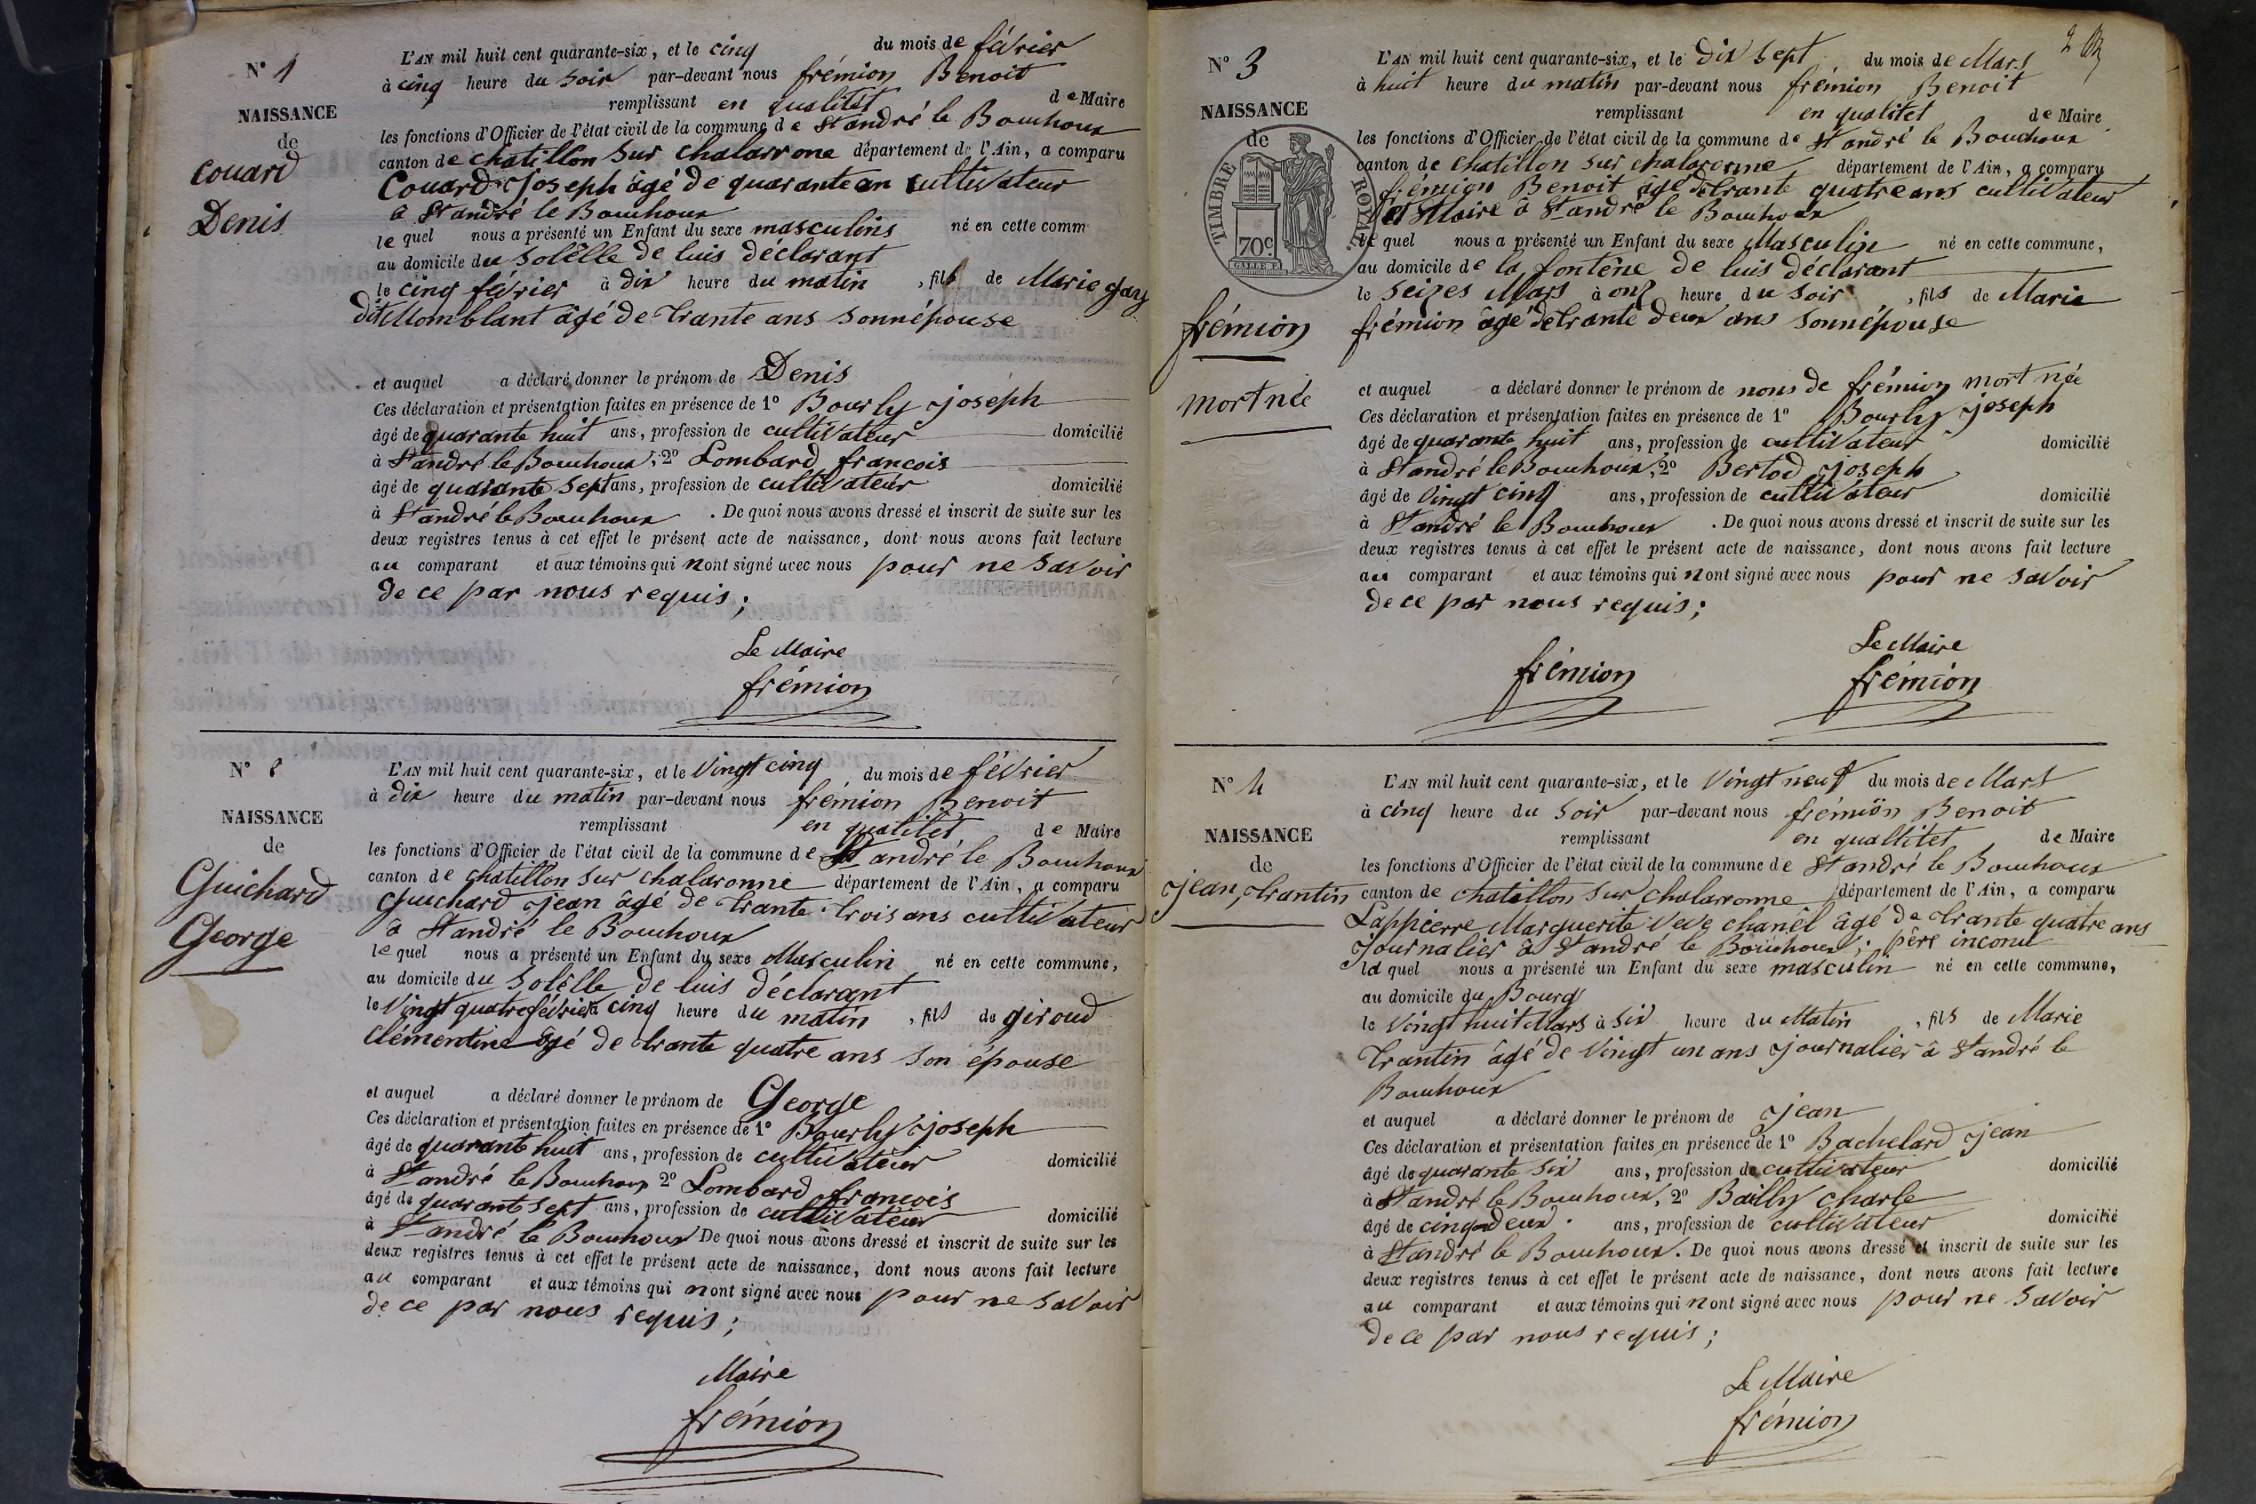 N° 1
NAISSANCE
de
Couard
Denis
L'AN mil huit cent quarante-six, et le cinq du mois de février
à cinq heure du soir par-devant nous frémion Benoit
remplissant en qualitét de Maire
les fonctions d'Officier de l'état civil de la commune de St andré le Bouchoux
canton de chatillon sur chalarrone département de l'Ain, a comparu
Couard Joseph âgé de quarante an cultivateur
à St andré le Bouchoux
le quel nous a présenté un Enfant du sexe masculins né en cette comm
au domicile du Solèlle de luis déclarant
le cinq février à dix heure du matin, fils de Marie Gay
dit Momblant âgé de trante ans sonnépouse
et auquel a déclaré donner le prénom de Denis
Ces déclaration et présentation faites en présence de 1° Bourly joseph
âgé de quarante huit ans, profession de cultivateur domicilié
à St andré le Bouchoux; 2° Lombard francois
âgé de quarante sept ans, profession de cultivateur domicilié
à St andré le Bouchoux. De quoi nous avons dressé et inscrit de suite sur les
deux registres tenus à cet effet le présent acte de naissance, dont nous avons fait lecture
au comparant et aux témoins qui nont signé avec nous pour ne savoir
de ce par nous requis;
Le Maire
frémion
N° 2
NAISSANCE
de
Guichard
George
L'AN mil huit cent quarante-six, et le Vingt cinq du mois de février
à dix heure du matin par-devant nous frémion Benoit
remplissant en qualitét de Maire
les fonctions d'Officier de l'état civil de la commune de St andré le Bouchoux
canton de chatillon sur chalaronne département de l'Ain, a comparu
Guichard jean âgé de trante trois ans cultivateur
à St andré le Bouchoux
le quel nous a présenté un Enfant du sexe Masculin né en cette commune,
au domicile du Solèlle de luis déclarant
le Vingt quatre février à cinq heure du matin, fils de giroud
Clémentine âgé de trante quatre ans son épouse
et auquel a déclaré donner le prénom de George
Ces déclaration et présentation faites en présence de 1° Bourly joseph
âgé de quarante huit ans, profession de cultivateur domicilié
à St andré le Bouchoux 2° Lombard francois
âgé de quarante sept ans, profession de cultivateur domicilié
à St andré le Bouchoux De quoi nous avons dressé et inscrit de suite sur les
deux registres tenus à cet effet le présent acte de naissance, dont nous avons fait lecture
au comparant et aux témoins qui nont signé avec nous pour ne savoir
de ce par nous requis;
Maire
frémion
2
N° 3
NAISSANCE
de
TIMBRE ROYAL
70c
frémion
mort née
L'AN mil huit cent quarante-six, et le dix sept du mois de Mars
à huit heure du matin par-devant nous frémion Benoit
remplissant en qualitet de Maire
les fonctions d'Officier de l'état civil de la commune de St andré le Bouchoux
canton de chatillon sur chalaronne département de l'Ain, a comparu
frémion Benoit âgé de trante quatre ans cultivateur
et Maire à St andré le Bouchoux
le quel nous a présenté un Enfant du sexe Masculin né en cette commune,
au domicile de la fontêne de luis déclarant
le Seizes Mars à onz heure du soir, fils de Marie
frémion âgé de trante deux ans sonnépouse
et auquel a déclaré donner le prénom de nons de frémion mort née
Ces déclaration et présentation faites en présence de 1° Bourly joseph
âgé de quarante huit ans, profession de cultivateur domicilié
à St andré le Bouchoux, 2° Bertod joseph
âgé de vingt cinq ans, profession de cultivateur domicilié
à St andré le Bouchoux. De quoi nous avons dressé et inscrit de suite sur les
deux registres tenus à cet effet le présent acte de naissance, dont nous avons fait lecture
au comparant et aux témoins qui nont signé avec nous pour ne savoir
de ce par nous requis;
frémion
Le Maire
frémion
N° 4
NAISSANCE
de
jean, trantin
L'AN mil huit cent quarante-six, et le Vingt neuf du mois de Mars
à cinq heure du soir par-devant nous frémion Benoit
remplissant en qualtitet de Maire
les fonctions d'Officier de l'état civil de la commune de St andré le Bouchoux
canton de chatillon sur chalarronne département de l'Ain, a comparu
Lappierre Marguerite veve chanêl âgé de trante quatre ans
journalier à St andré le Bouchoux; père inconu
la quel nous a présenté un Enfant du sexe masculin né en cette commune,
au domicile du Bourg
le Vingt huit Mars à Six heure du Matin, fils de Marie
trantin âgé de Vingt un ans journalier à St andré le
Bouchoux
et auquel a déclaré donner le prénom de jean
Ces déclaration et présentation faites en présence de 1° Bachelard jean
âgé de quarante six ans, profession de cultivateur domicilié
à St andré le Bouchoux, 2° Bailly charle
âgé de cinq deux ans, profession de cultivateur domicilié
à St andré le Bouchoux. De quoi nous avons dressé et inscrit de suite sur les
deux registres tenus à cet effet le présent acte de naissance, dont nous avons fait lecture
au comparant et aux témoins qui nont signé avec nous pour ne savoir
de ce par nous requis;
Le Maire
frémion